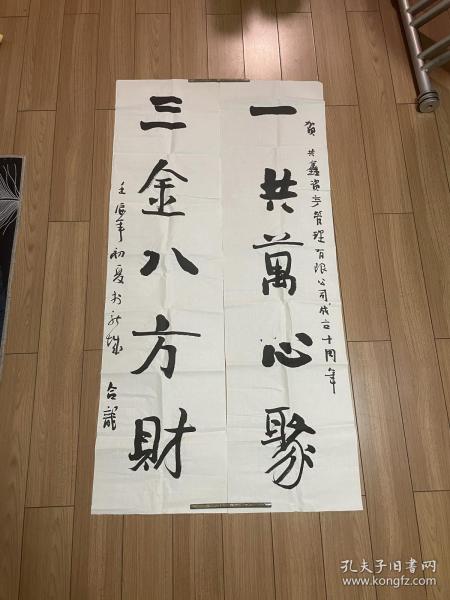 賀 共鑫资产管理有限公司成立十周年
一共萬心聚
三金八方財
壬辰年初夏书於
合龍
孔夫子旧书网
www.kongfz.com